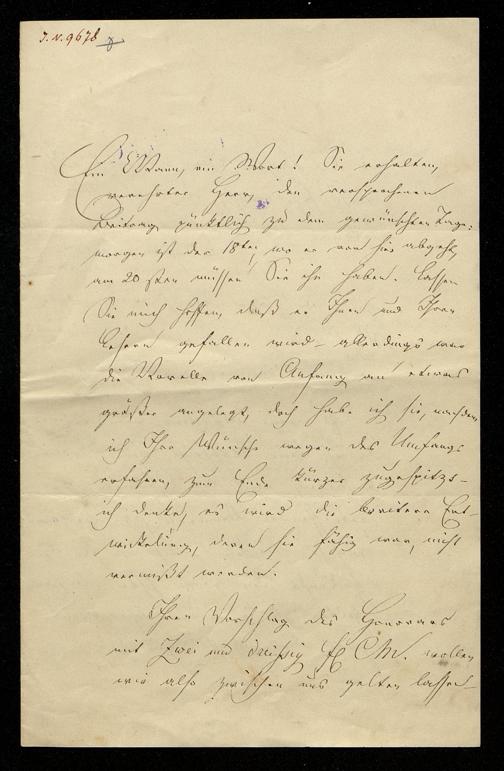 J. N. 9678
Ein Mann, ein Wort! Sie erhalten,
verehrter Herr, den versprochenen
Beitrag pünktlich zu dem gewünschten Tage:
morgen ist der 18te, wo er von hier abgeht,
am 20sten müssen Sie ihn haben. Lassen
Sie mich hoffen, daß er Ihnen und Ihren
Lesern gefallen wird – allerdings war
die Novelle von Anfang an etwas
größer angelegt, doch habe ich sie, nachdem
ich Ihre Wünsche wegen des Umfangs
erfahren, zum Ende kürzer zugespitzt –
ich denke, es wird die breitere Ent-
wickelung, deren sie fähig war, nicht
vermißt werden.
Ihren Vorschlag des Honorars
mit Zwei und dreißig fl CM. wollen
wir also zwischen uns gelten lassen –